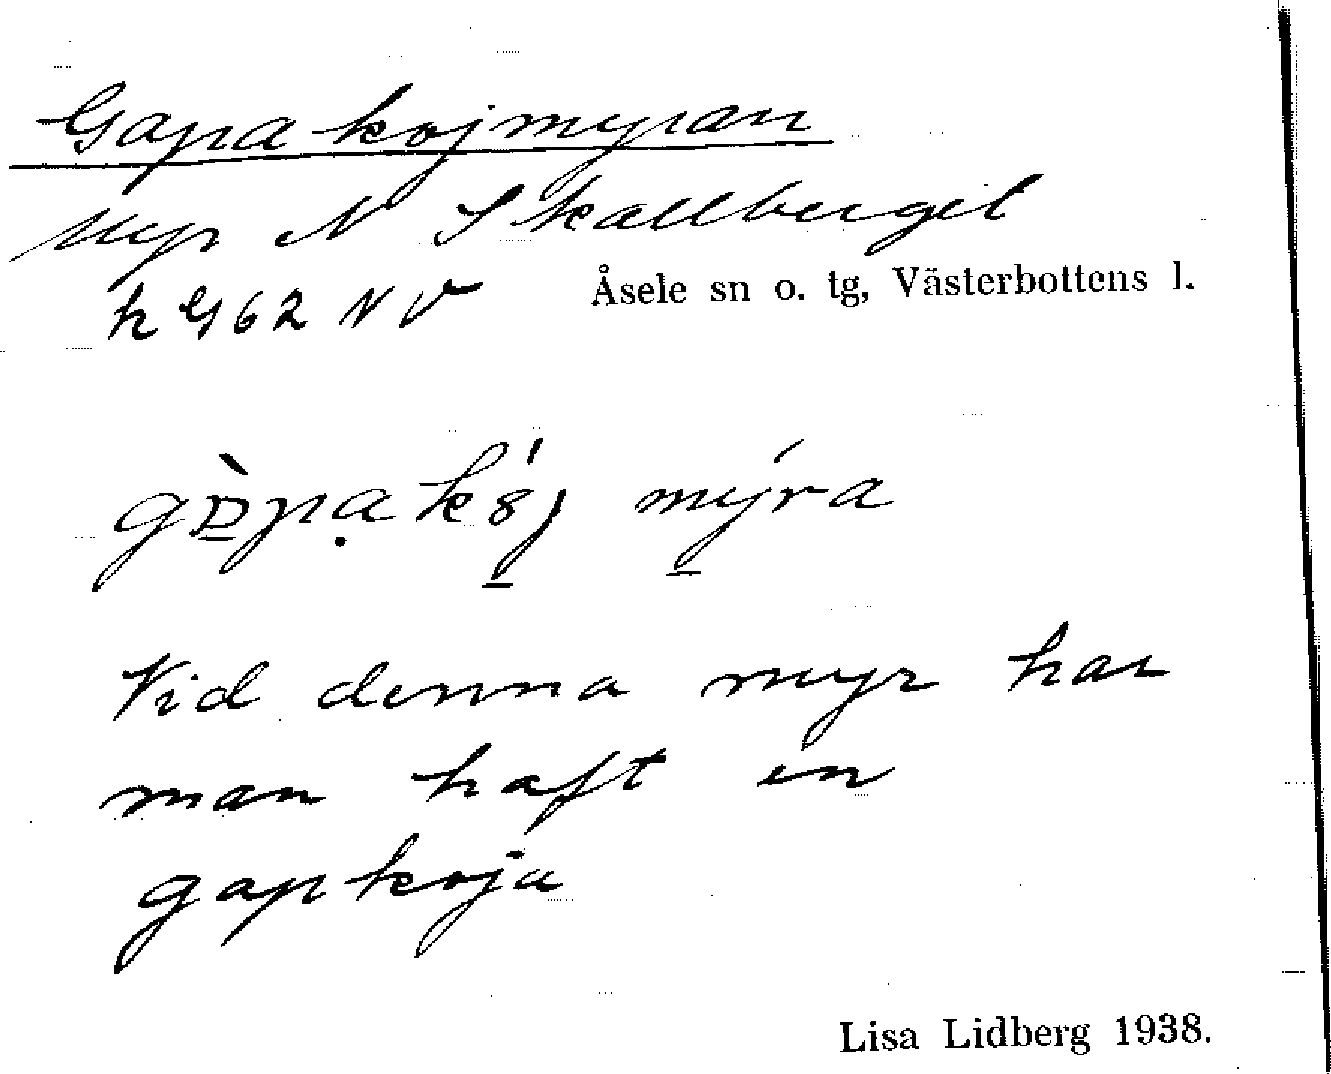 Gapakojmyran
Myr N Skallberget
k G62 NV Åsele sn o. tg, Västerbottens l.
Vid denna myr har
man haft en
gapkoja
Lisa Lidberg 1938.